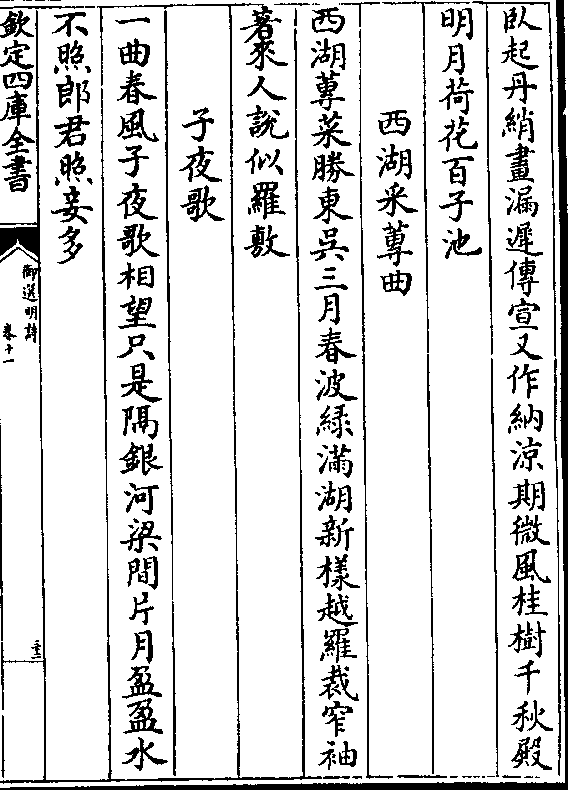 臥起丹綃晝漏遲傳宣又作納涼期微風桂樹千秋殿
明月荷花百子池
西湖采蓴曲
西湖蓴菜勝東吳三月春波綠滿湖新樣越羅裁窄袖
著來人說似羅敷
子夜歌
一曲春風子夜歌相望只是隔銀河梁間片月盈盈水
不照郎君照妾多
欽定四庫全書
御選明詩
卷十一